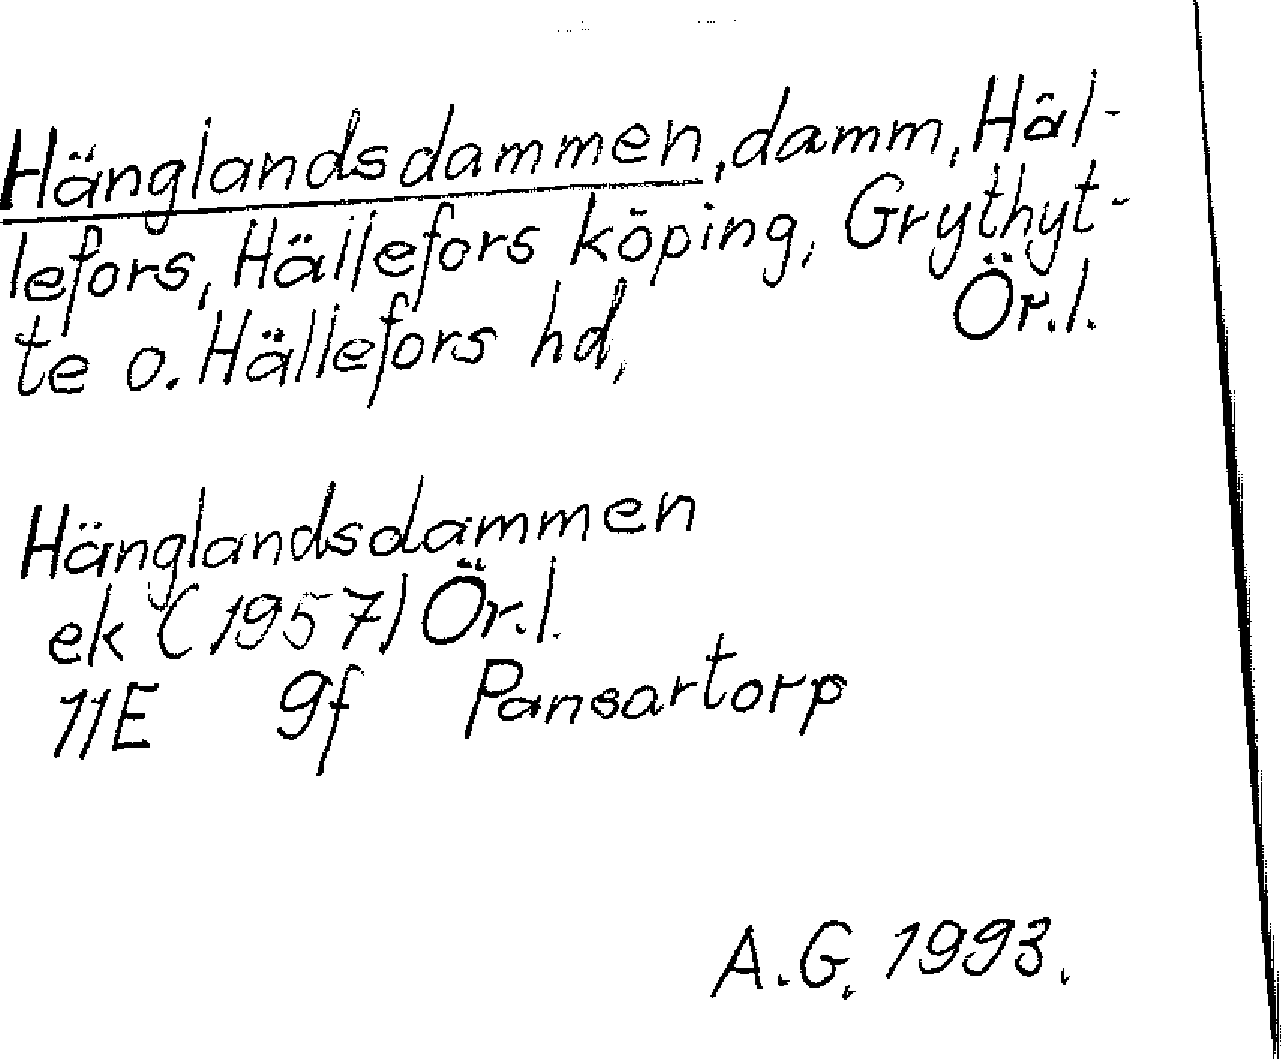 Hänglandsdammen, damm, Häl-
lefors, Hällefors köping, Grythyt-
te o. Hällefors hd, Ör.l.
Hänglandsdammen
ek (1957) Ör.l.
11E 9f Pansartorp
A.G. 1993.